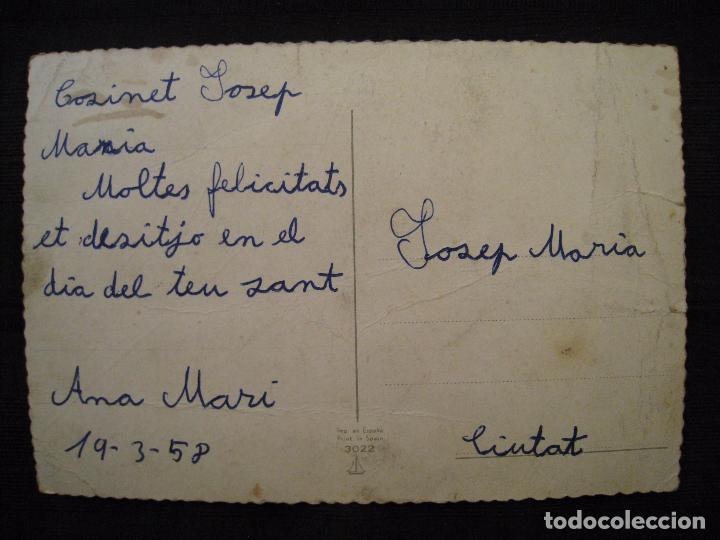 Cosinet Josep
Maria
Moltes felicitats
et desitjo en el
dia del teu sant
Ana Mari
19-3-58
Josep Maria
Ciutat
Imp. en España
Print. in Spain
3022
todocoleccion
todocoleccion.net